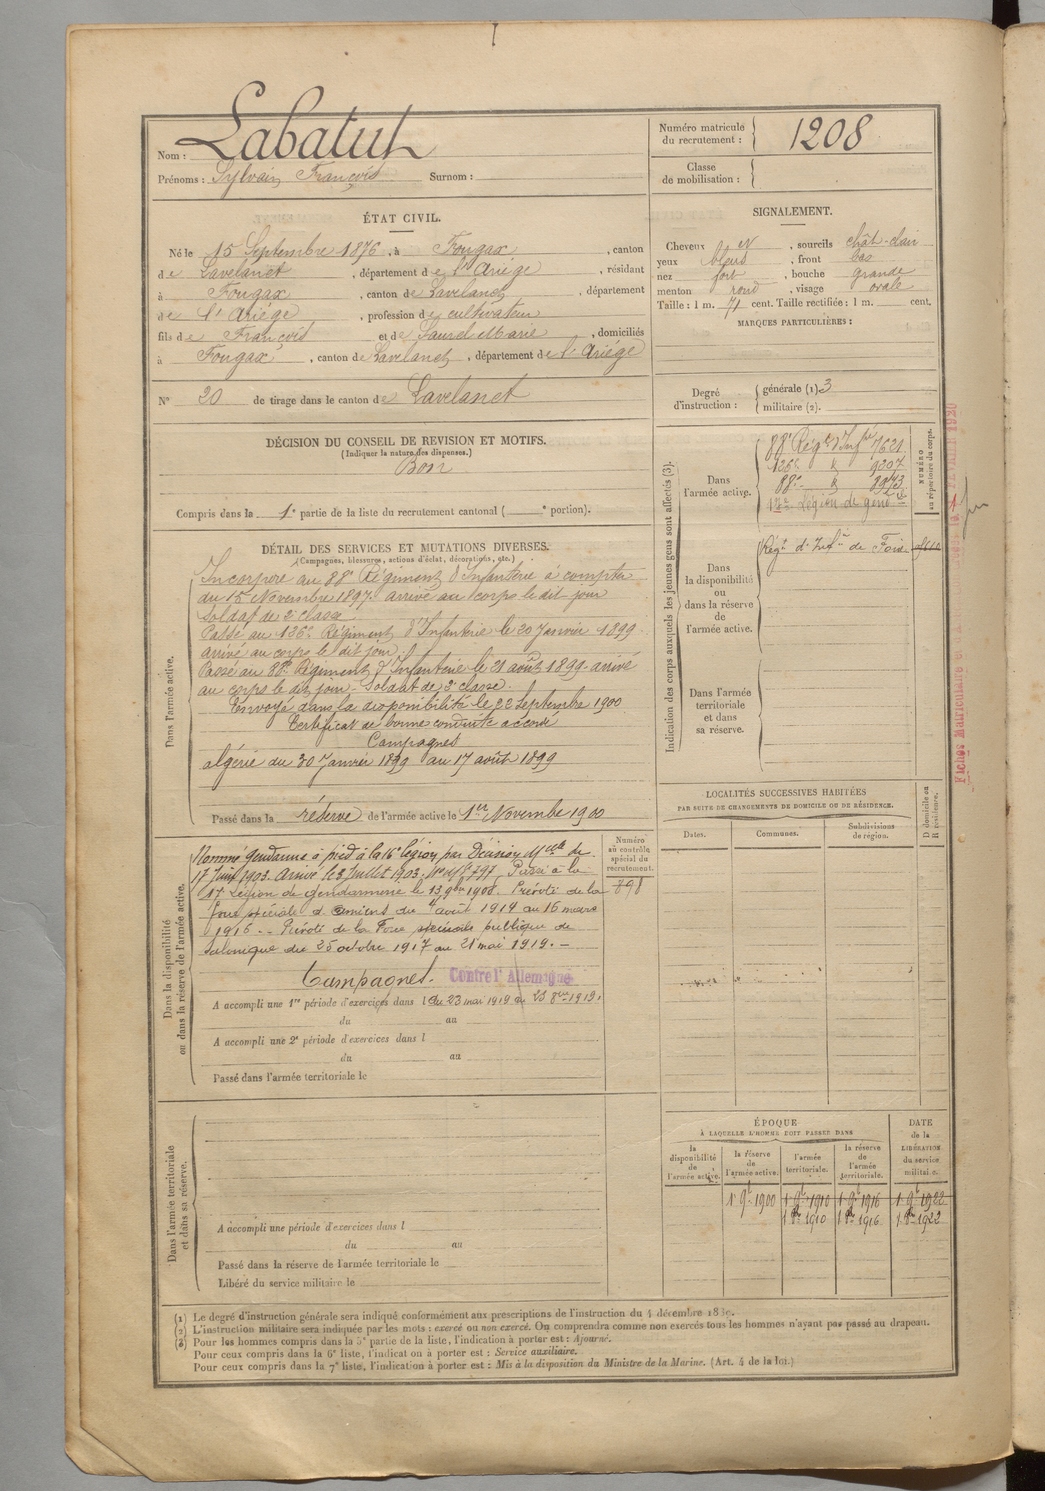 Nom : Labatut
Prénoms : Sylvain François Surnom :
Numéro matricule du recrutement : 1208
Classe de mobilisation :
ÉTAT CIVIL.
Né le 15 Septembre 1876, à Fougax, canton
de Lavelanet, département de l'Ariège, résidant
à Fougax, canton de Lavelanet, département
de l'Ariège, profession de cultivateur
fils de François et de Saurel Marie, domiciliés
à Fougax, canton de Lavelanet, département de l'Ariège
N° 20 de tirage dans le canton de Lavelanet
SIGNALEMENT.
Cheveux et, sourcils chât-clair
yeux bleus, front bas
nez fort, bouche grande
menton rond, visage ovale
Taille : 1 m. 71 cent. Taille rectifiée : 1 m. cent.
MARQUES PARTICULIÈRES :
Degré d'instruction : générale (1). 3
militaire (2).
DÉCISION DU CONSEIL DE REVISION ET MOTIFS.
(Indiquer la nature des dispenses.)
Bon
Compris dans la 1e partie de la liste du recrutement cantonal ( e portion).
DÉTAIL DES SERVICES ET MUTATIONS DIVERSES.
(Campagnes, blessures, actions d'éclat, décorations, etc.)
Dans l'armée active.
Incorporé au 88e Régiment d'Infanterie à compter
du 15 Novembre 1897. arrivé au corps le dit jour
soldat de 2e classe.
Passé au 126e Régiment d'Infanterie le 20 Janvier 1899
arrivé au corps le dit jour.
Passé au 88e Régiment d'Infanterie le 21 août 1899 arrivé
au corps le dit jour - Soldat de 2e classe.
Envoyé dans la disponibilité le 22 Septembre 1900
Certificat de bonne conduite accordé
Campagnes
algérie du 30 Janvier 1899 au 17 août 1899
Passé dans la réserve de l'armée active le 1er Novembre 1900
Dans la disponibilité ou dans la réserve de l'armée active.
Nommé gendarme à pied à la 16e légion par Décision Mlle du
17 Juin 1903. Arrivé le 3 Juillet 1903. 797. Passé à la
17e Légion de gendarmerie le 13 9bre 1908. Prévôté de la
force spéciale d'Amiens du 4 août 1914 au 16 mars
1916. - Prévôté de la Force publique de
Salonique du 25 octobre 1917 au 21 mai 1919. -
Campagnes. Contre l'Allemagne
A accompli une 1re période d'exercices dans l du 23 mai 1919 au 23 8bre 1919.
du au
A accompli une 2e période d'exercices dans l
du au
Passé dans l'armée territoriale le
Numéro au contrôle spécial du recrutement.
898
Dans l'armée territoriale et dans sa réserve.
A accompli une période d'exercices dans l
du au
Passé dans la réserve de l'armée territoriale le
Libéré du service militaire le
Indication des corps auxquels les jeunes gens sont affectés (3).
NUMÉRO au répertoire du corps.
Dans l'armée active.
88e Régt d'Infie 7621
126e d 9207
88e d 8973
17e Légion de gend
Dans la disponibilité ou dans la réserve de l'armée active.
Régt d'Infie de Foix
Dans l'armée territoriale et dans sa réserve.
LOCALITÉS SUCCESSIVES HABITÉES
PAR SUITE DE CHANGEMENTS DE DOMICILE OU DE RÉSIDENCE.
Dates. Communes. Subdivisions de région. D domicile ou R résidence.
ÉPOQUE
À LAQUELLE L'HOMME DOIT PASSER DANS
la disponibilité de l'armée active.
la réserve de l'armée active.
l'armée territoriale.
la réserve de l'armée territoriale.
DATE de la LIBÉRATION du service militaire.
1 9bre 1900 1 9bre 1910 1 9bre 1916 1 9bre 1922
1910 1916 1922
(1) Le degré d'instruction générale sera indiqué conformément aux prescriptions de l'instruction du 4 décembre
(2) L'instruction militaire sera indiquée par les mots : exercé ou non exercé. On comprendra comme non exercés tous les hommes n'ayant pas passé au drapeau.
(3) Pour les hommes compris dans la 5e partie de la liste, l'indication à porter est : Ajourné.
Pour ceux compris dans la 6e liste, l'indication à porter est : Service auxiliaire.
Pour ceux compris dans la 7e liste, l'indication à porter est : Mis à la disposition du Ministre de la Marine. (Art. 4 de la loi.)